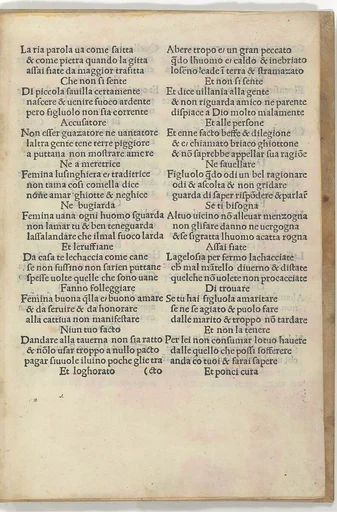 La ria parola ua come saitta
& come pietra quando la gitta
assai fiate da maggior trafitta
Che non si sente
Di piccola fauilla certamente
nascere & uenire fuoco ardente
pero figluolo non sia corrente
Accusatore
Non esser guazatore ne uantatore
laltra gente tene terre piggiore
a puttana non mostrare amore
Ne a meretrice
Femina lusinghiera e/ traditrice
non tama cosi comella dice
nõne amar ghiotte & neghice
Ne bugiarda
Femina uana ogni huomo sguarda
non lamar tu & ben teneguarda
lassalandare che ilmal fuoco larda
Et leruffiane
Da casa te lechaccia come cane
se non fussino non sarien puttane
spesse uolte quelle che sono uane
Fanno folleggiare
Femina buona q̃lla e/ buono amare
& da seruire & da honorare
alla cattiua non manifestare
Niun tuo facto
Dandare alla tauerna non sia ratto
& nõlo usar troppo a nullo pacto
pagar siuuole iluino poche glie tra
Et loghorato (cto
Abere tropo e/ un gran peccato
q̃do lhuomo e/ caldo & inebriato
loseno leade i terra & stramazato
Et non si sente
Et dice uillania alla gente
& non riguarda amico ne parente
dispiace a Dio molto malamente
Et alle persone
Et enne facto beffe & dilegione
& e/ chiamato briaco ghiottone
& nõ saprebbe appellar sua ragiõe
Ne fauellare
Figluolo q̃do odi un bel ragionare
odi & ascolta & non gridare
guarda di saper rispõdere & parlar̃
Se ti bisogna
Altuo uicino nõ alleuar menzogna
non glifare danno ne uergogna
& se sigratta lhuomo acatta rogna
Assai fiate
Lagelosa per fermo lachacciate
ch mal matello diuerno & distate
quelche nõ uolete non procacciate
Di trouare
Se tu hai figluola amaritare
se ne se agiato & puolo fare
dalle marito & troppo nõ tardare
Et non la tenere
Per lei non consumar lotuo hauere
dalle quello che possi sofferere
anda co tuoi & farai sapere
Et ponci cura